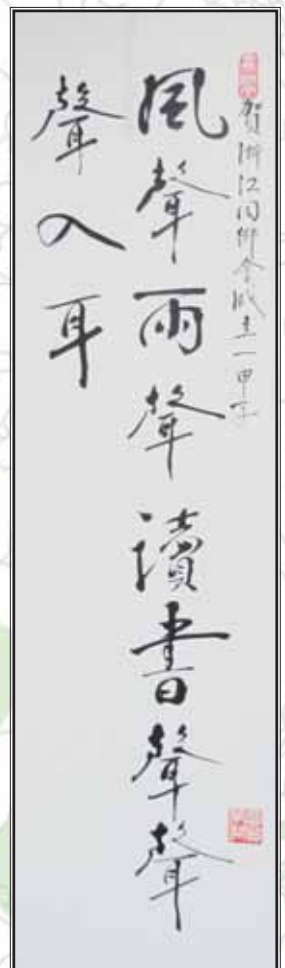 賀浙江同鄉會成立一甲子
風聲雨聲讀書聲聲
聲入耳